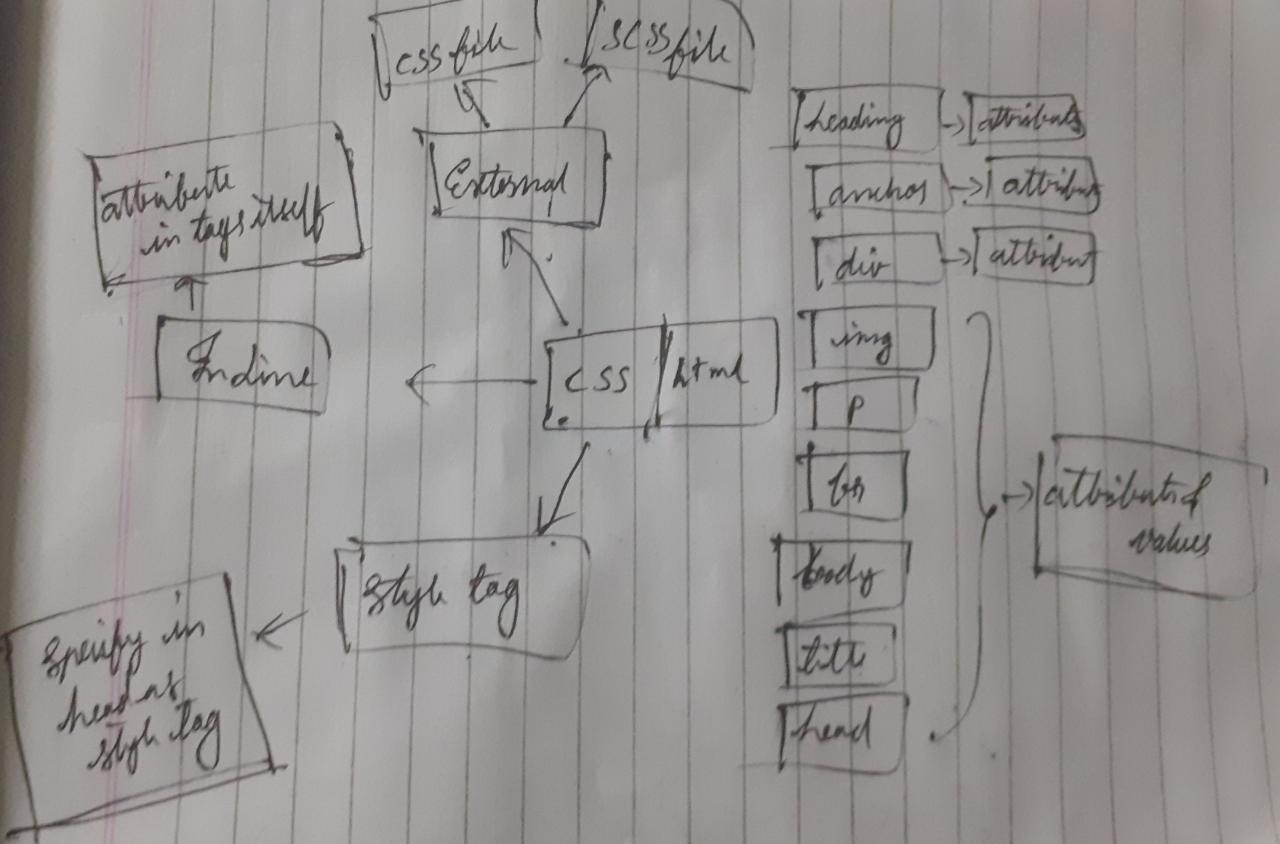 css file
scss file
External
attribute
in tags itself
Inline
css
html
style tag
specify in
head as
style tag
heading
attributes
anchor
attribut
div
attribut
img
p
br
body
title
head
attributes &
values